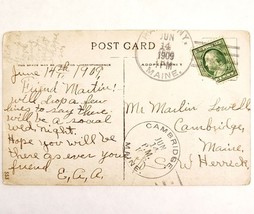 JUN
14
1909
P.M.
MAINE.
POST CARD
June 14th, 1909,
Friend Martin:
Will drop a few
lines to say there
will be a social
Wed. night.
Hope you will be
there as ever your
friend
E. A. A.
CAMBRIDGE
JUN
P.M.
MAINE.
Mr. Martin Lowell
Cambridge,
Maine,
S. W Herrick